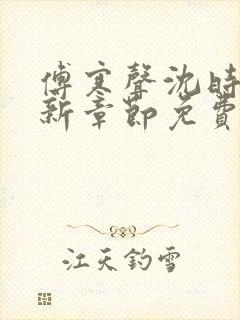 傅寒聲沈時
新章節免費
江天釣雪